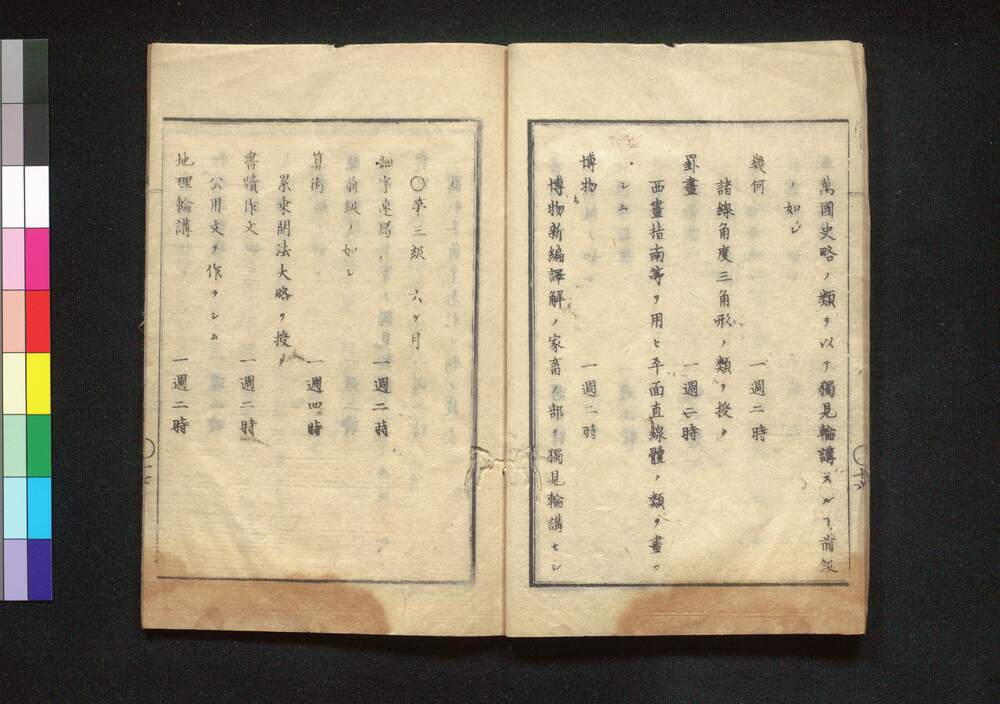 萬國史略ノ類ヲ以テ獨見輪講スルヿ前級
ノ如シ
幾何 一週二時
諸線角度三角形ノ類ヲ授ク
罫畫 一週二時
西畫指南等ヲ用ヒ平面直線體ノ類ヲ畫カ
シム
博物 一週二時
博物新編譯解ノ家畜ノ部ヲ獨見輪講セシ
○第三級 六ケ月
細字速寫 一週二時
前級ノ如シ
算術 一週四時
累乘開法大略ヲ授ク
書牘作文 一週二時
公用文ヲ作ラシム
地理輪講 一週二時